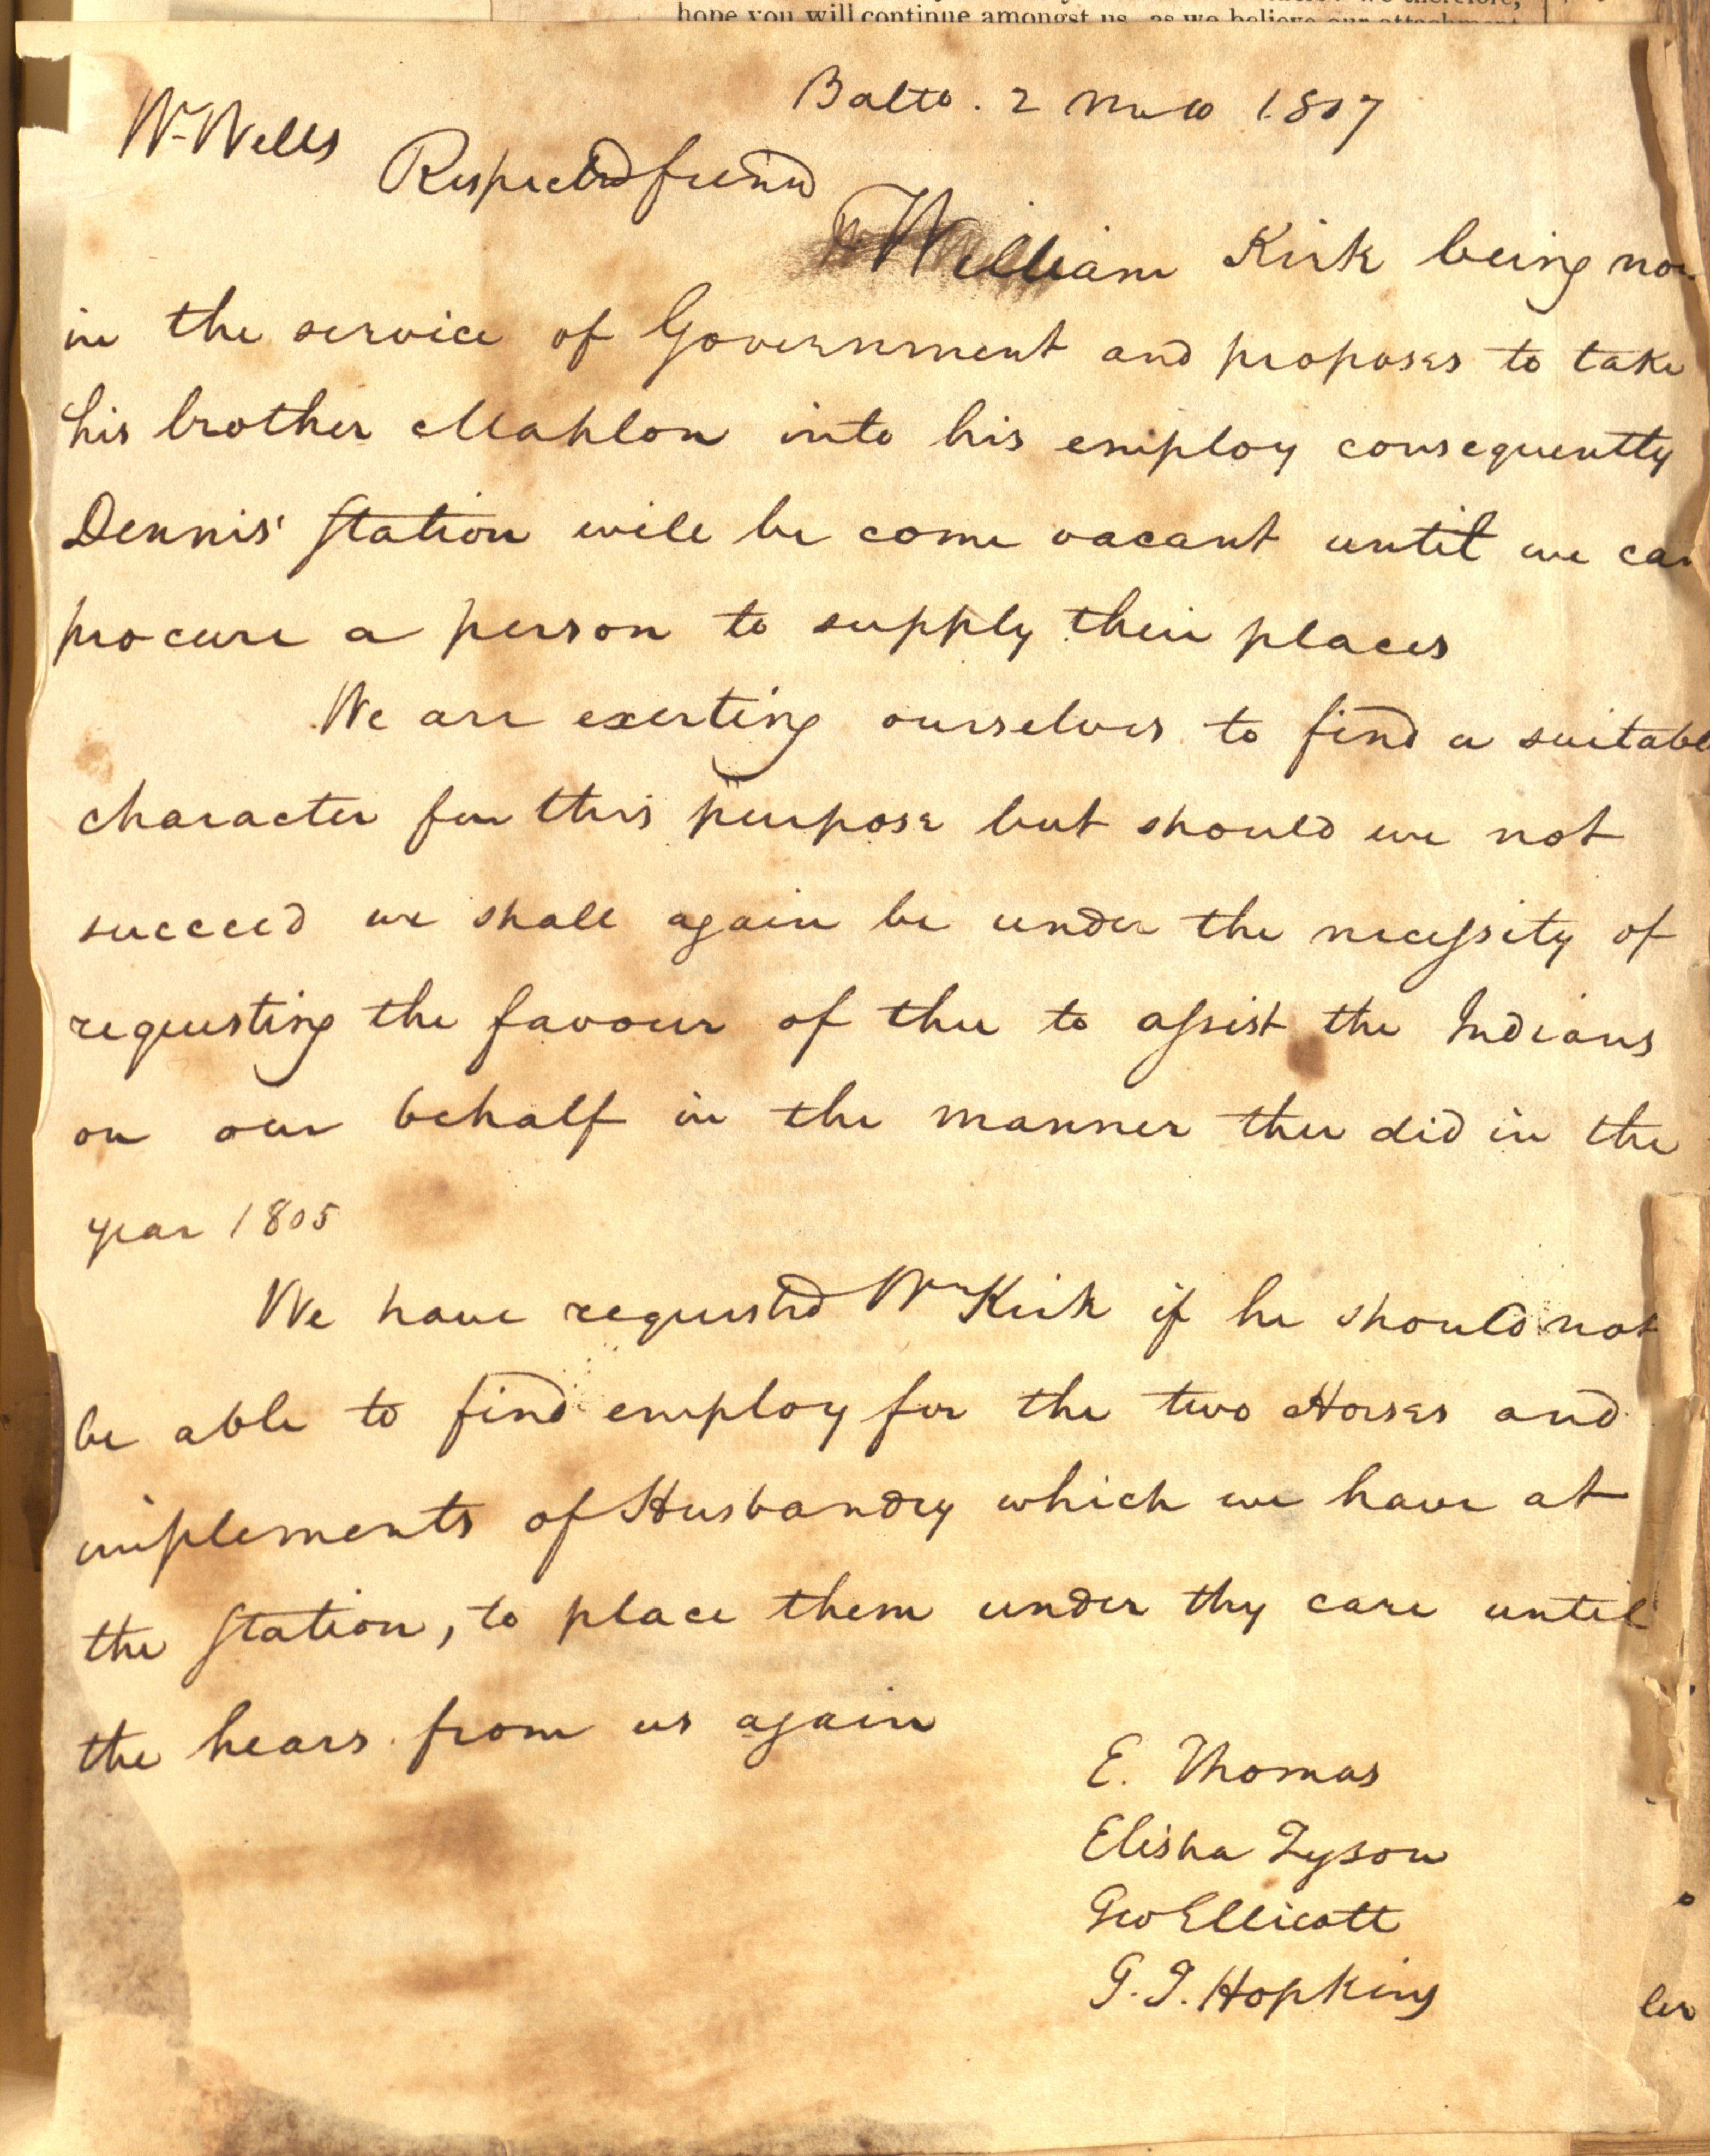 hope you will continue amongst us, as we believe our attachment
Balto. 2 mo 10 1807
Wm Wells
Respected friend
William Kirk being now
in the service of Government and proposes to take
his brother Mahlon into his employ consequently
Dennis' Station will be come vacant until we can
procure a person to supply their places
We are exerting ourselves to find a suitabl
character for this purpose but should we not
succeed we shall again be under the necessity of
requesting the favour of thee to assist the Indians
on our behalf in the manner thee did in the
year 1805
We have requested Wm Kirk if he should not
be able to find employ for the two Horses and
implements of Husbandry which we have at
the Station, to place them under thy care until
the hears from us again
E. Thomas
Elisha Tyson
Geo Ellicott
G. T. Hopkins